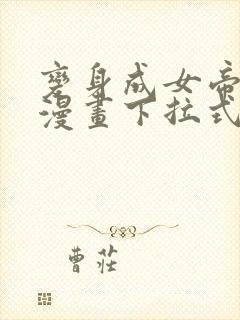 變身成女帝
漫畫下拉式
曹莊